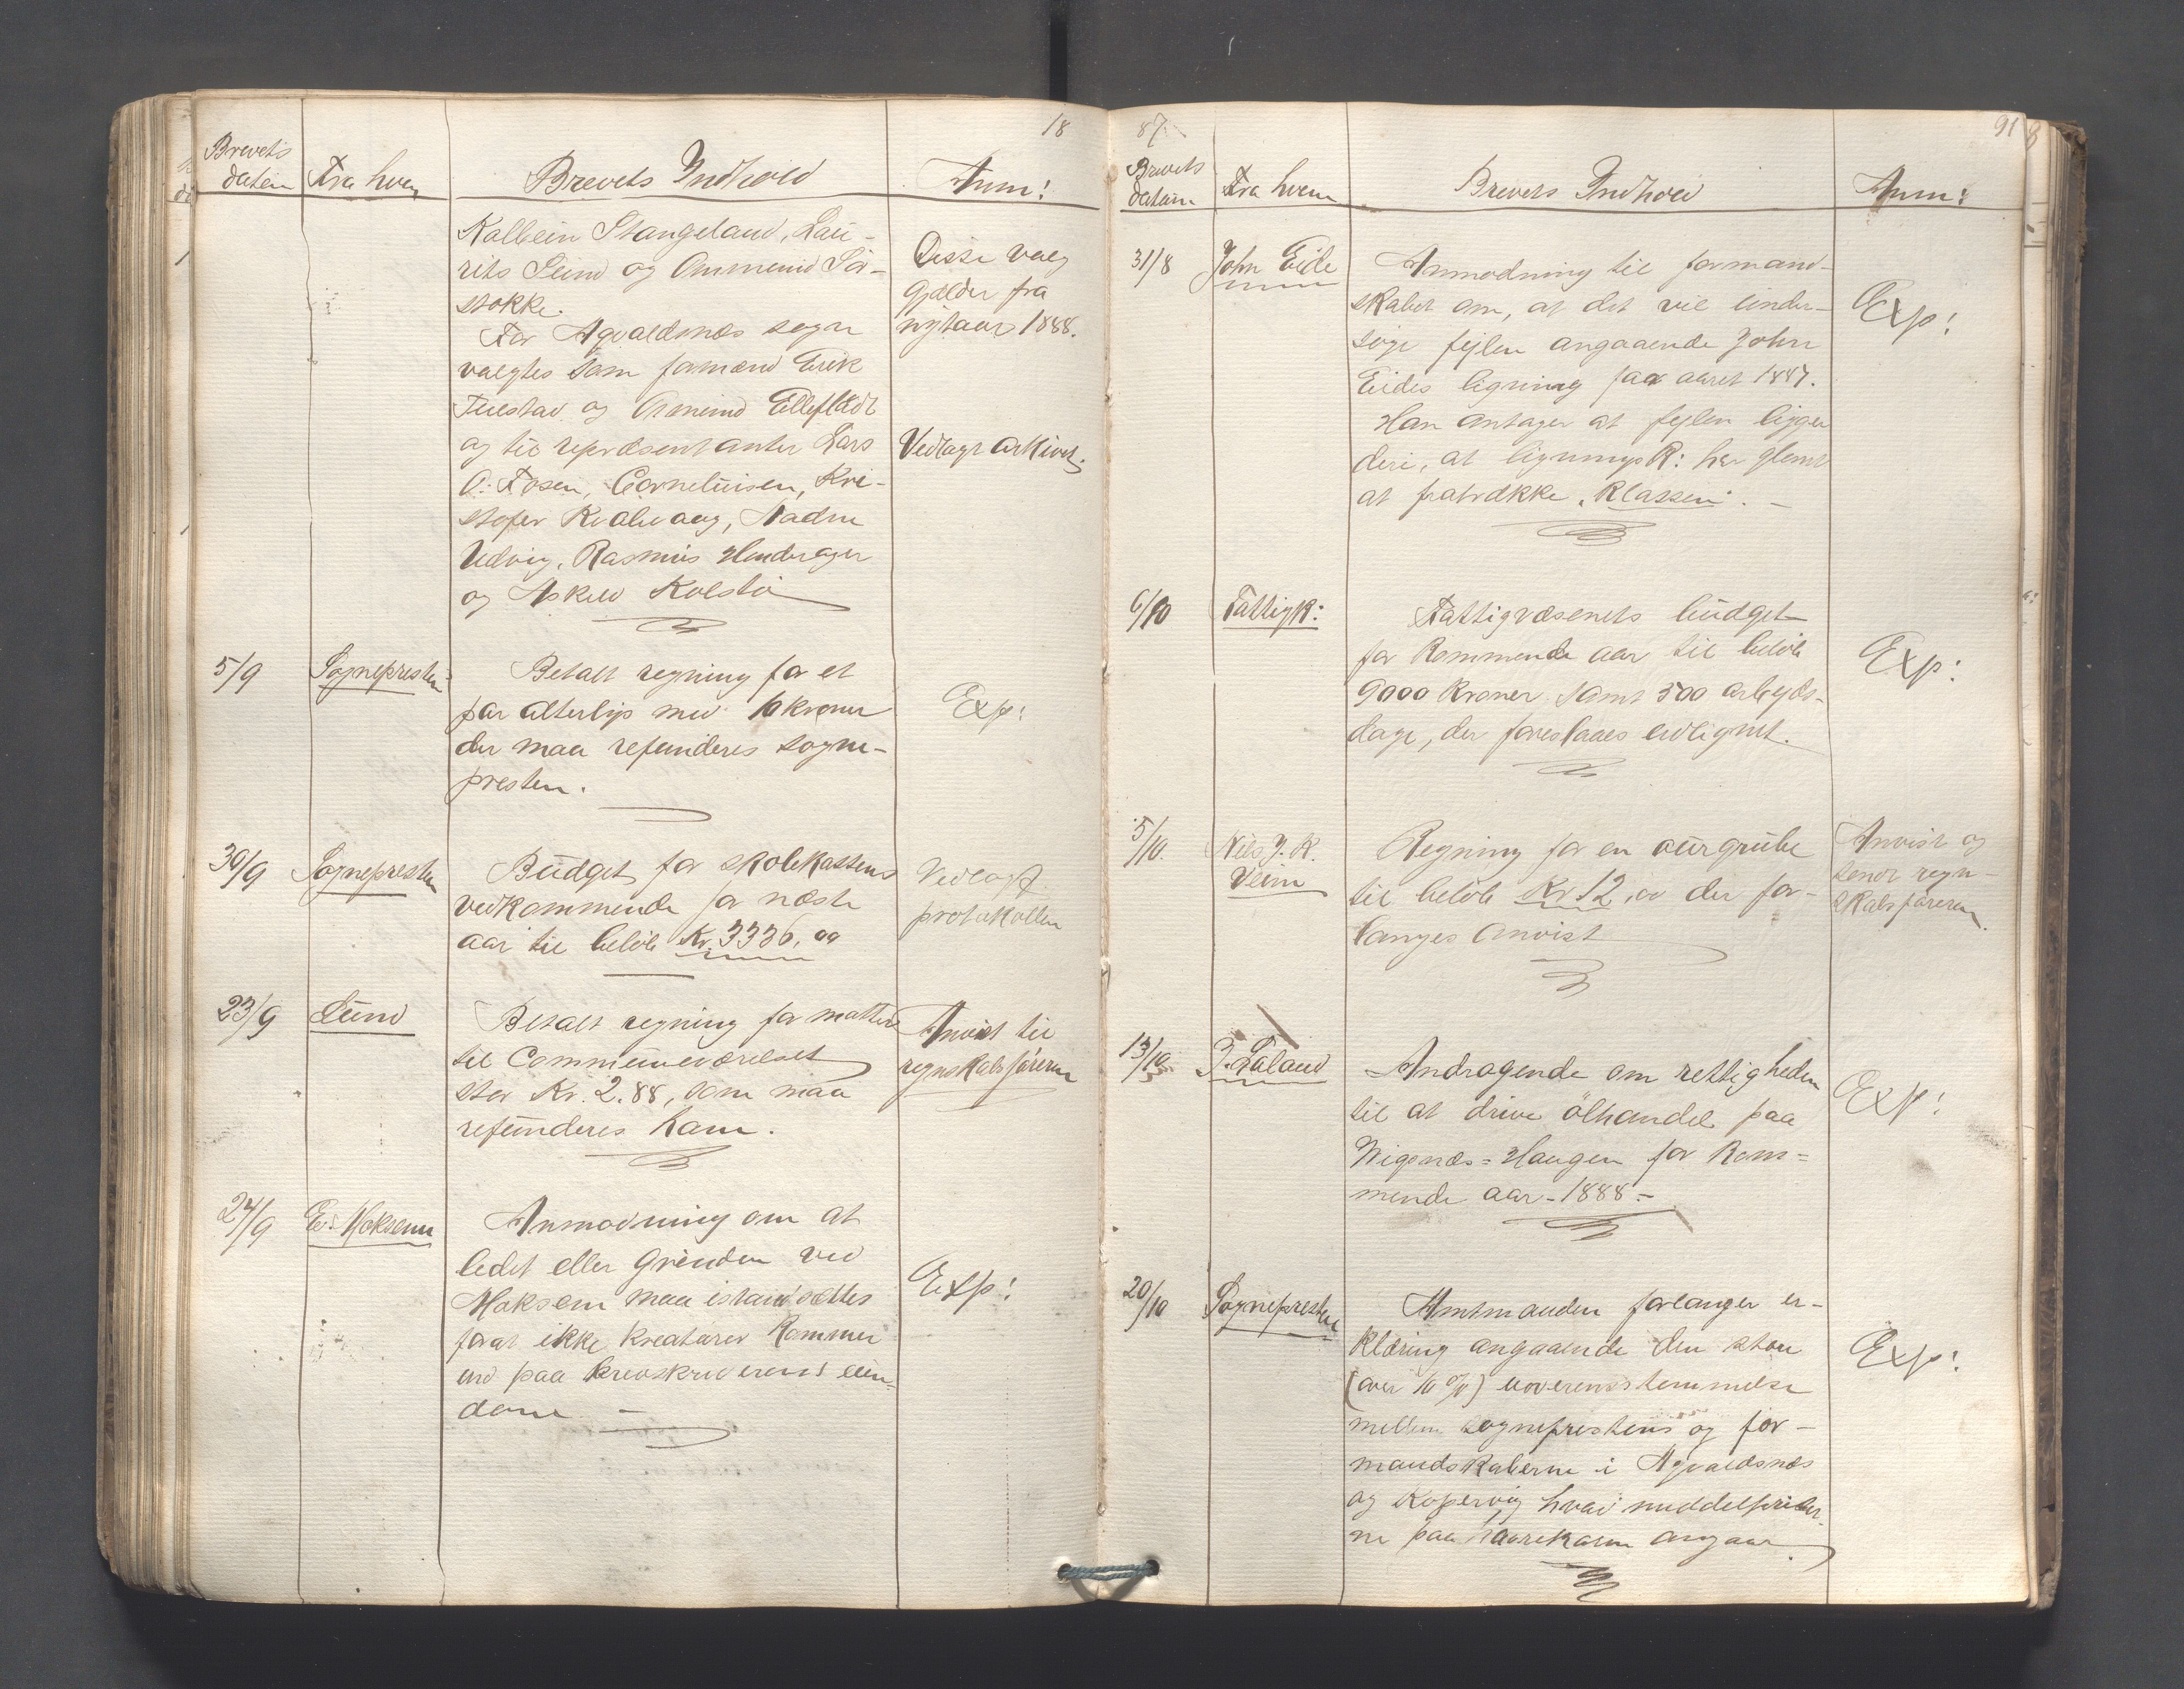 18
Brevets
datum
Fra hvem
Brevets Indhold
Anm:
Kolbein Stangeland, Lau-
rits Lund og Ommund Sör-
stokke.
For Agvaldsnæs sogn
valgtes som formænd Erik
og
og til repræsentanter Lars
O. Fosen, Corneliusen, Kri-
stofer Kvalevaag,
Vedvig, Rasmus
og Askild Kolstö
Disse valg
gjælder fra
nytaar 1888.
Vedlagt arkivet.
5/9
Sognepresten
Betalt regning for et
par alterlys med 10 kroner
der maa refunderes sogne-
presten.
Exp:
30/9
Sognepresten
Budget for skolekassens
vedkommende for næste
aar til belöb Kr. 3336,00
Vedlagt
protokollen
23/9
Lund
Betalt regning for matter
til Communeværelset
stor Kr. 2.88, som maa
refunderes ham.
Anvist til
regnskabsföreren
24/9
E. Moksem
Anmodning om at
ledet eller Grinden ved
Moksem maa istandsættes
forat ikke kreaturer kommer
ind paa brevskriverens eien-
dom. -
Exp!
87
91
Brevets
datum
Fra hvem
Brevets Indhold
Anm:
31/8
John Eide
Anmodning til formand-
skabet om, at det vil under-
söge fejlen angaaende John
Eides ligning for aaret 1887.
Han antager at fejlen ligger
deri, at lignings K: har glemt
at fratrække "Klassen". -
Exp!
6/10
Fattigk:
Fattigvæsenets budget
for kommende aar til belöb
9000 kroner samt 500 arbejds-
dage, der foreslaaes udlignet.
Exp:
5/10.
Nils J. K.
Veim
Regning for en aurgrube
til belöb Kr 12,00 der for-
langes anvist
Anvist og
sendt regn-
skabsföreren.
13/10
J. Laland
Andragende om rettigheden
til at drive ölhandel paa
Wigsnæs=Haugen for kom=
mende aar - 1888 -
Exp!
20/10
Sognepresten
Amtmanden forlanger er-
klæring angaaende den store
(over 10 %) uoverensstemmelse
mellem sogneprestens og for-
mandskaberne i Agvaldsnæs
og Kopervig hvad middelpriser-
ne paa havrekorn angaar.
Exp!